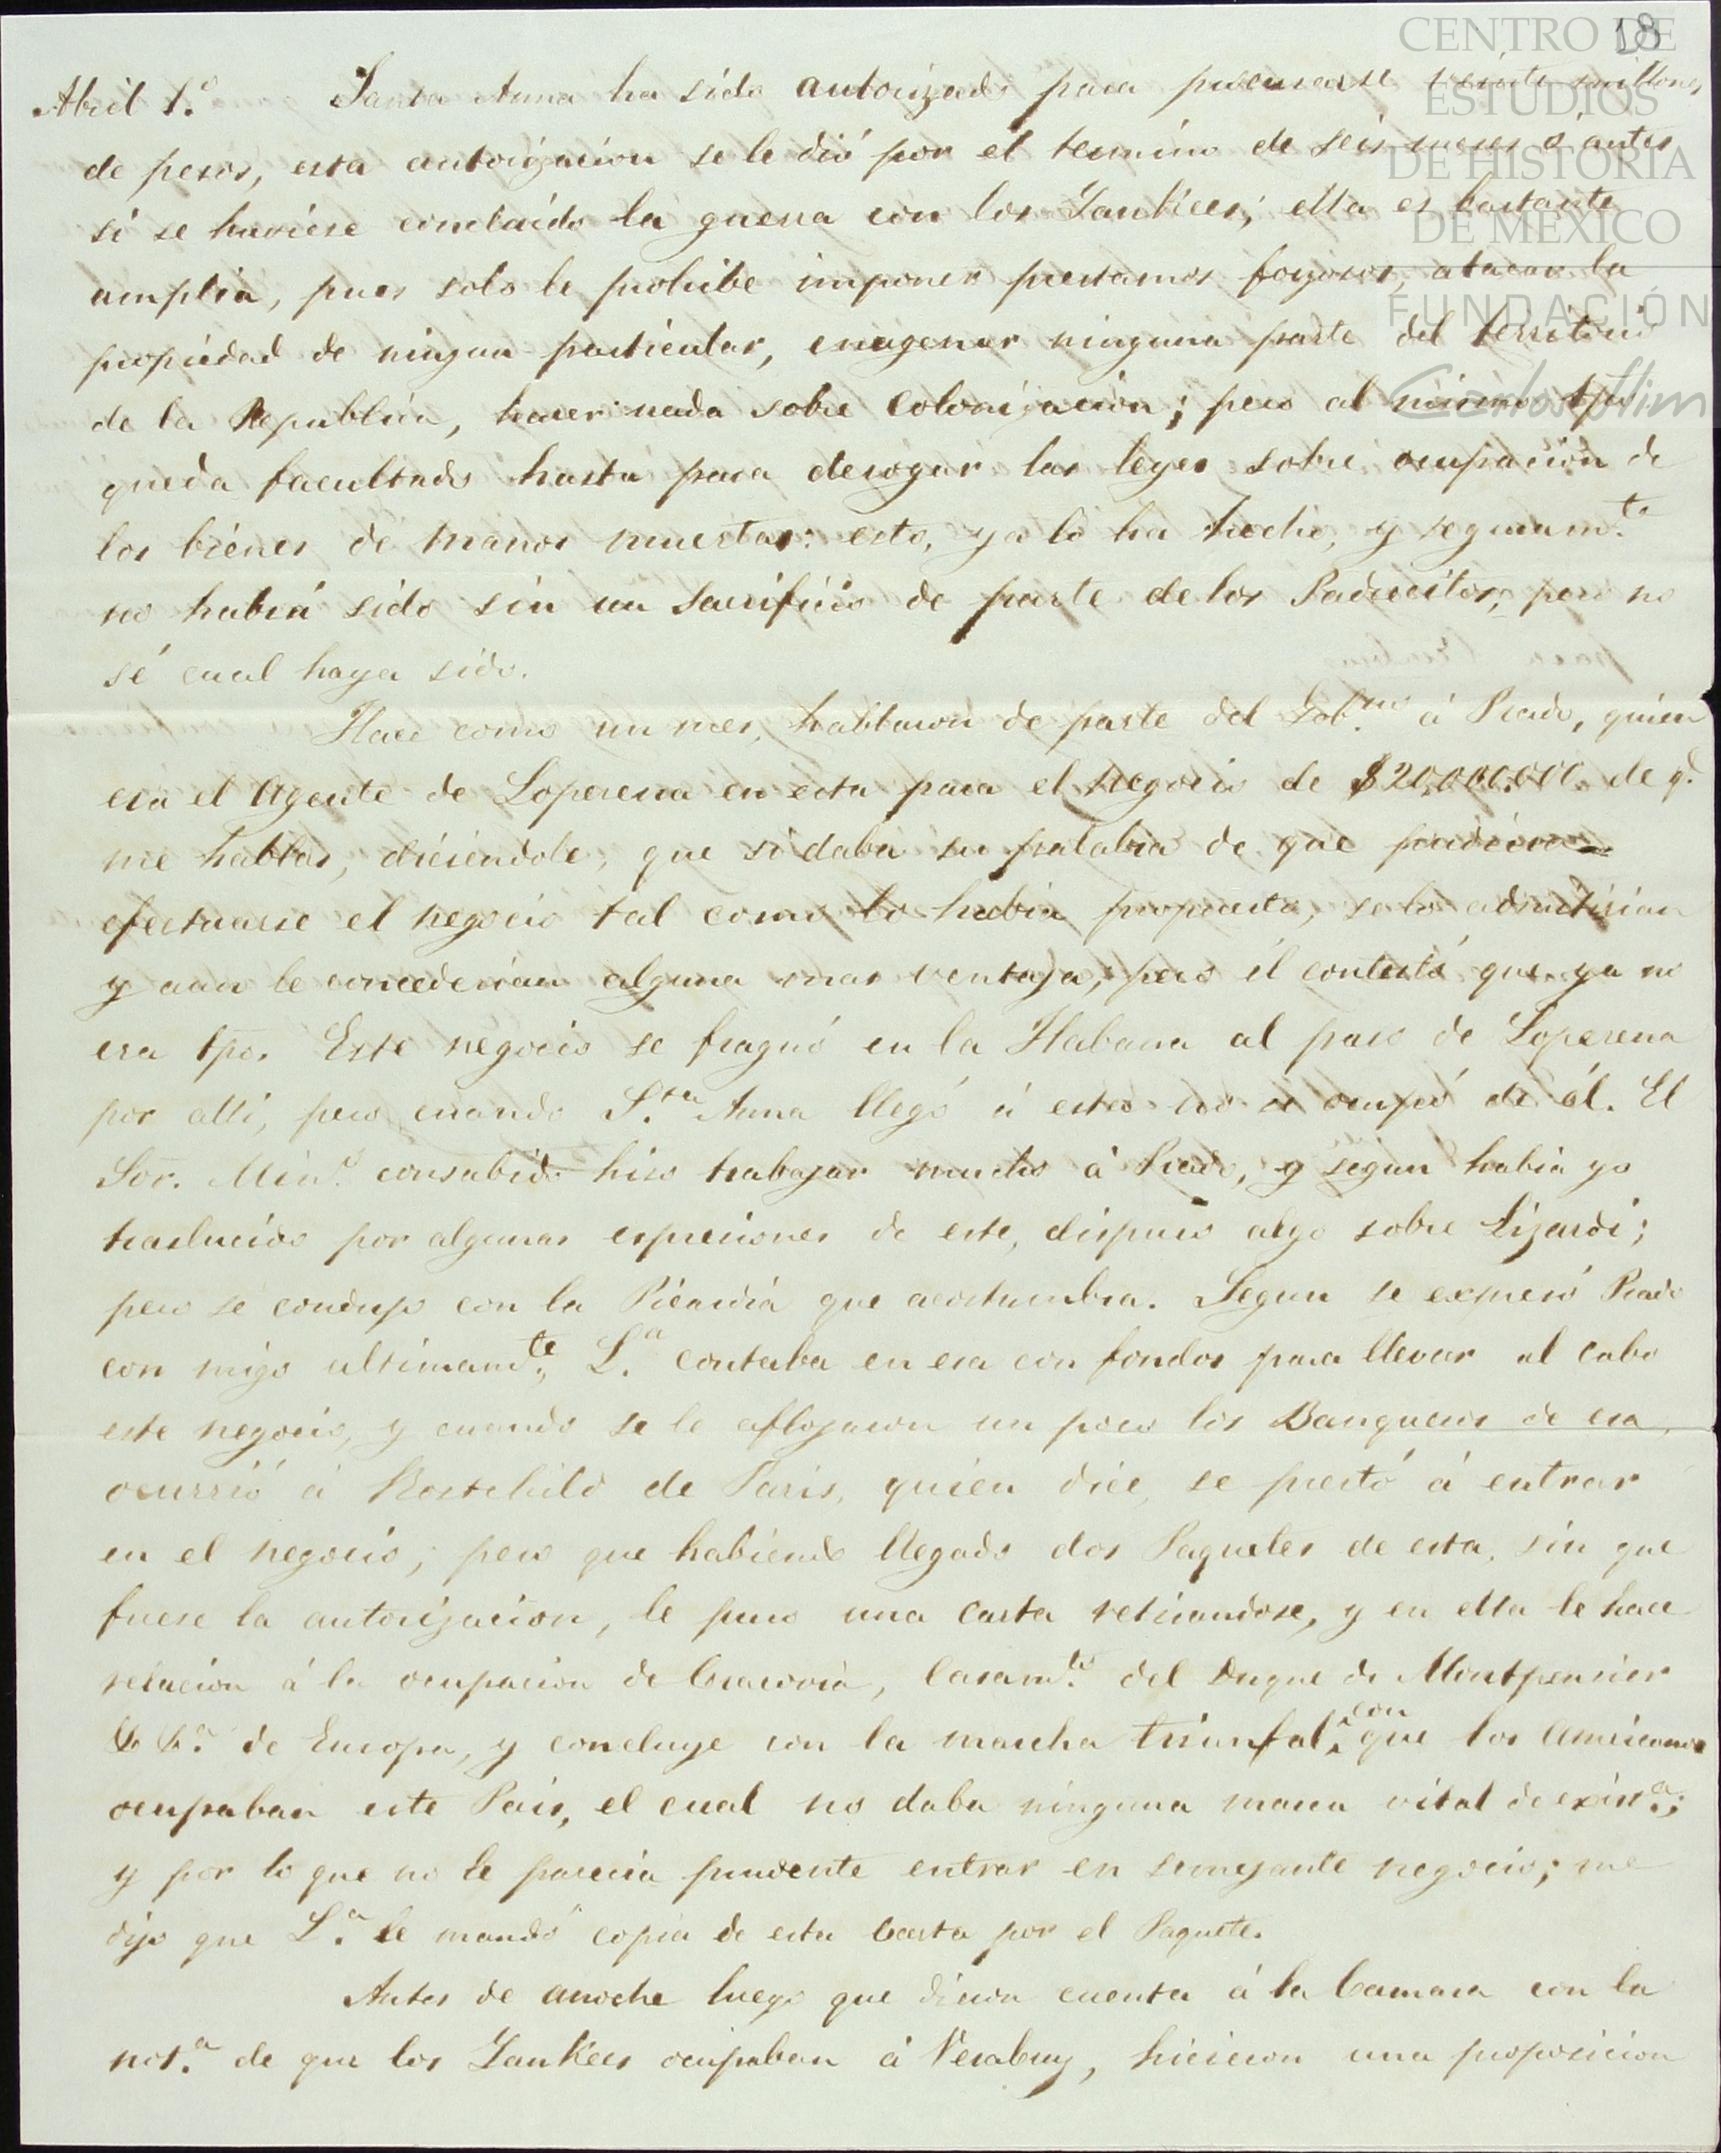 18
CENTRO DE
ESTUDIOS
DE HISTORIA
DE MEXICO
FUNDACIÓN
Carlos Slim
Abril 1.º Santa Anna ha sido autorizado para procurarse veinte millones
de pesos, esta autorizacion se le dió por el termino de seis meses ó antes
si se huviese concluido la guerra con los Yankees; ella es bastante
amplia, pues solo le prohibe imponer prestamos forzosos, atacar la
propiedad de ningun particular, enagenar ninguna parte del territorio
de la Republica, hacer nada sobre colonizacion; pero al mismo tpo.
queda facultado hasta para derogar las leyes sobre ocupacion de
los bienes de manos muertas: esto, ya lo ha hecho, y seguram.te
no habrá sido sin un sacrificio de parte de los Padrecitos, pero no
sé cual haya sido.
Hace como un mes, hablaron de parte del Gob.no á Prado, quien
era el Agente de Loperena en esta para el negocio de $20,000.000. de q.e
me hablas, diciendole, que si daba su palabra de que pudiera
efectuarse el negocio tal como lo habia propuesto, se lo admitirian
y aun le concederian alguna mas ventaja, pero él contestó que ya no
era tpo. Este negocio se fraguó en la Habana al paso de Loperena
por allí, pero cuando S.ta Anna llegó á esta no se ocupó de él. El
Sor. Min.o consabido hizo trabajar mucho á Prado, y segun habia yo
traslucido por algunas espresiones de este, dispuso algo sobre Lizardi;
pero se condujo con la Picardia que acostumbra. Segun se expresó Prado
con migo ultimam.te, L.a contaba en esa con fondos para llevar al cabo
este negocio, y cuando se le aflojaron un poco los Banqueros de esa,
ocurrió á Rostchild de Paris, quien dice, se prestó á entrar
en el negocio; pero que habiendo llegado dos Paquetes de esta, sin que
fuese la autorizacion, le puso una carta retirandose, y en ella le hace
relacion á la ocupacion de Cracovia, Casam.to del Duque de Montpensier
& &.a de Europa, y concluye con la marcha triunfal con que los Americanos
ocupaban este Pais, el cual no daba ninguna marca vital de exist.a;
y por lo que no le parecia prudente entrar en semejante negocio; me
dijo que L.a le mandó copia de esta Carta por el Paquete.
Antes de anoche luego que dieron cuenta á la Camara con la
not.a de que los Yankees ocupaban á Veracruz, hicieron una proposicion